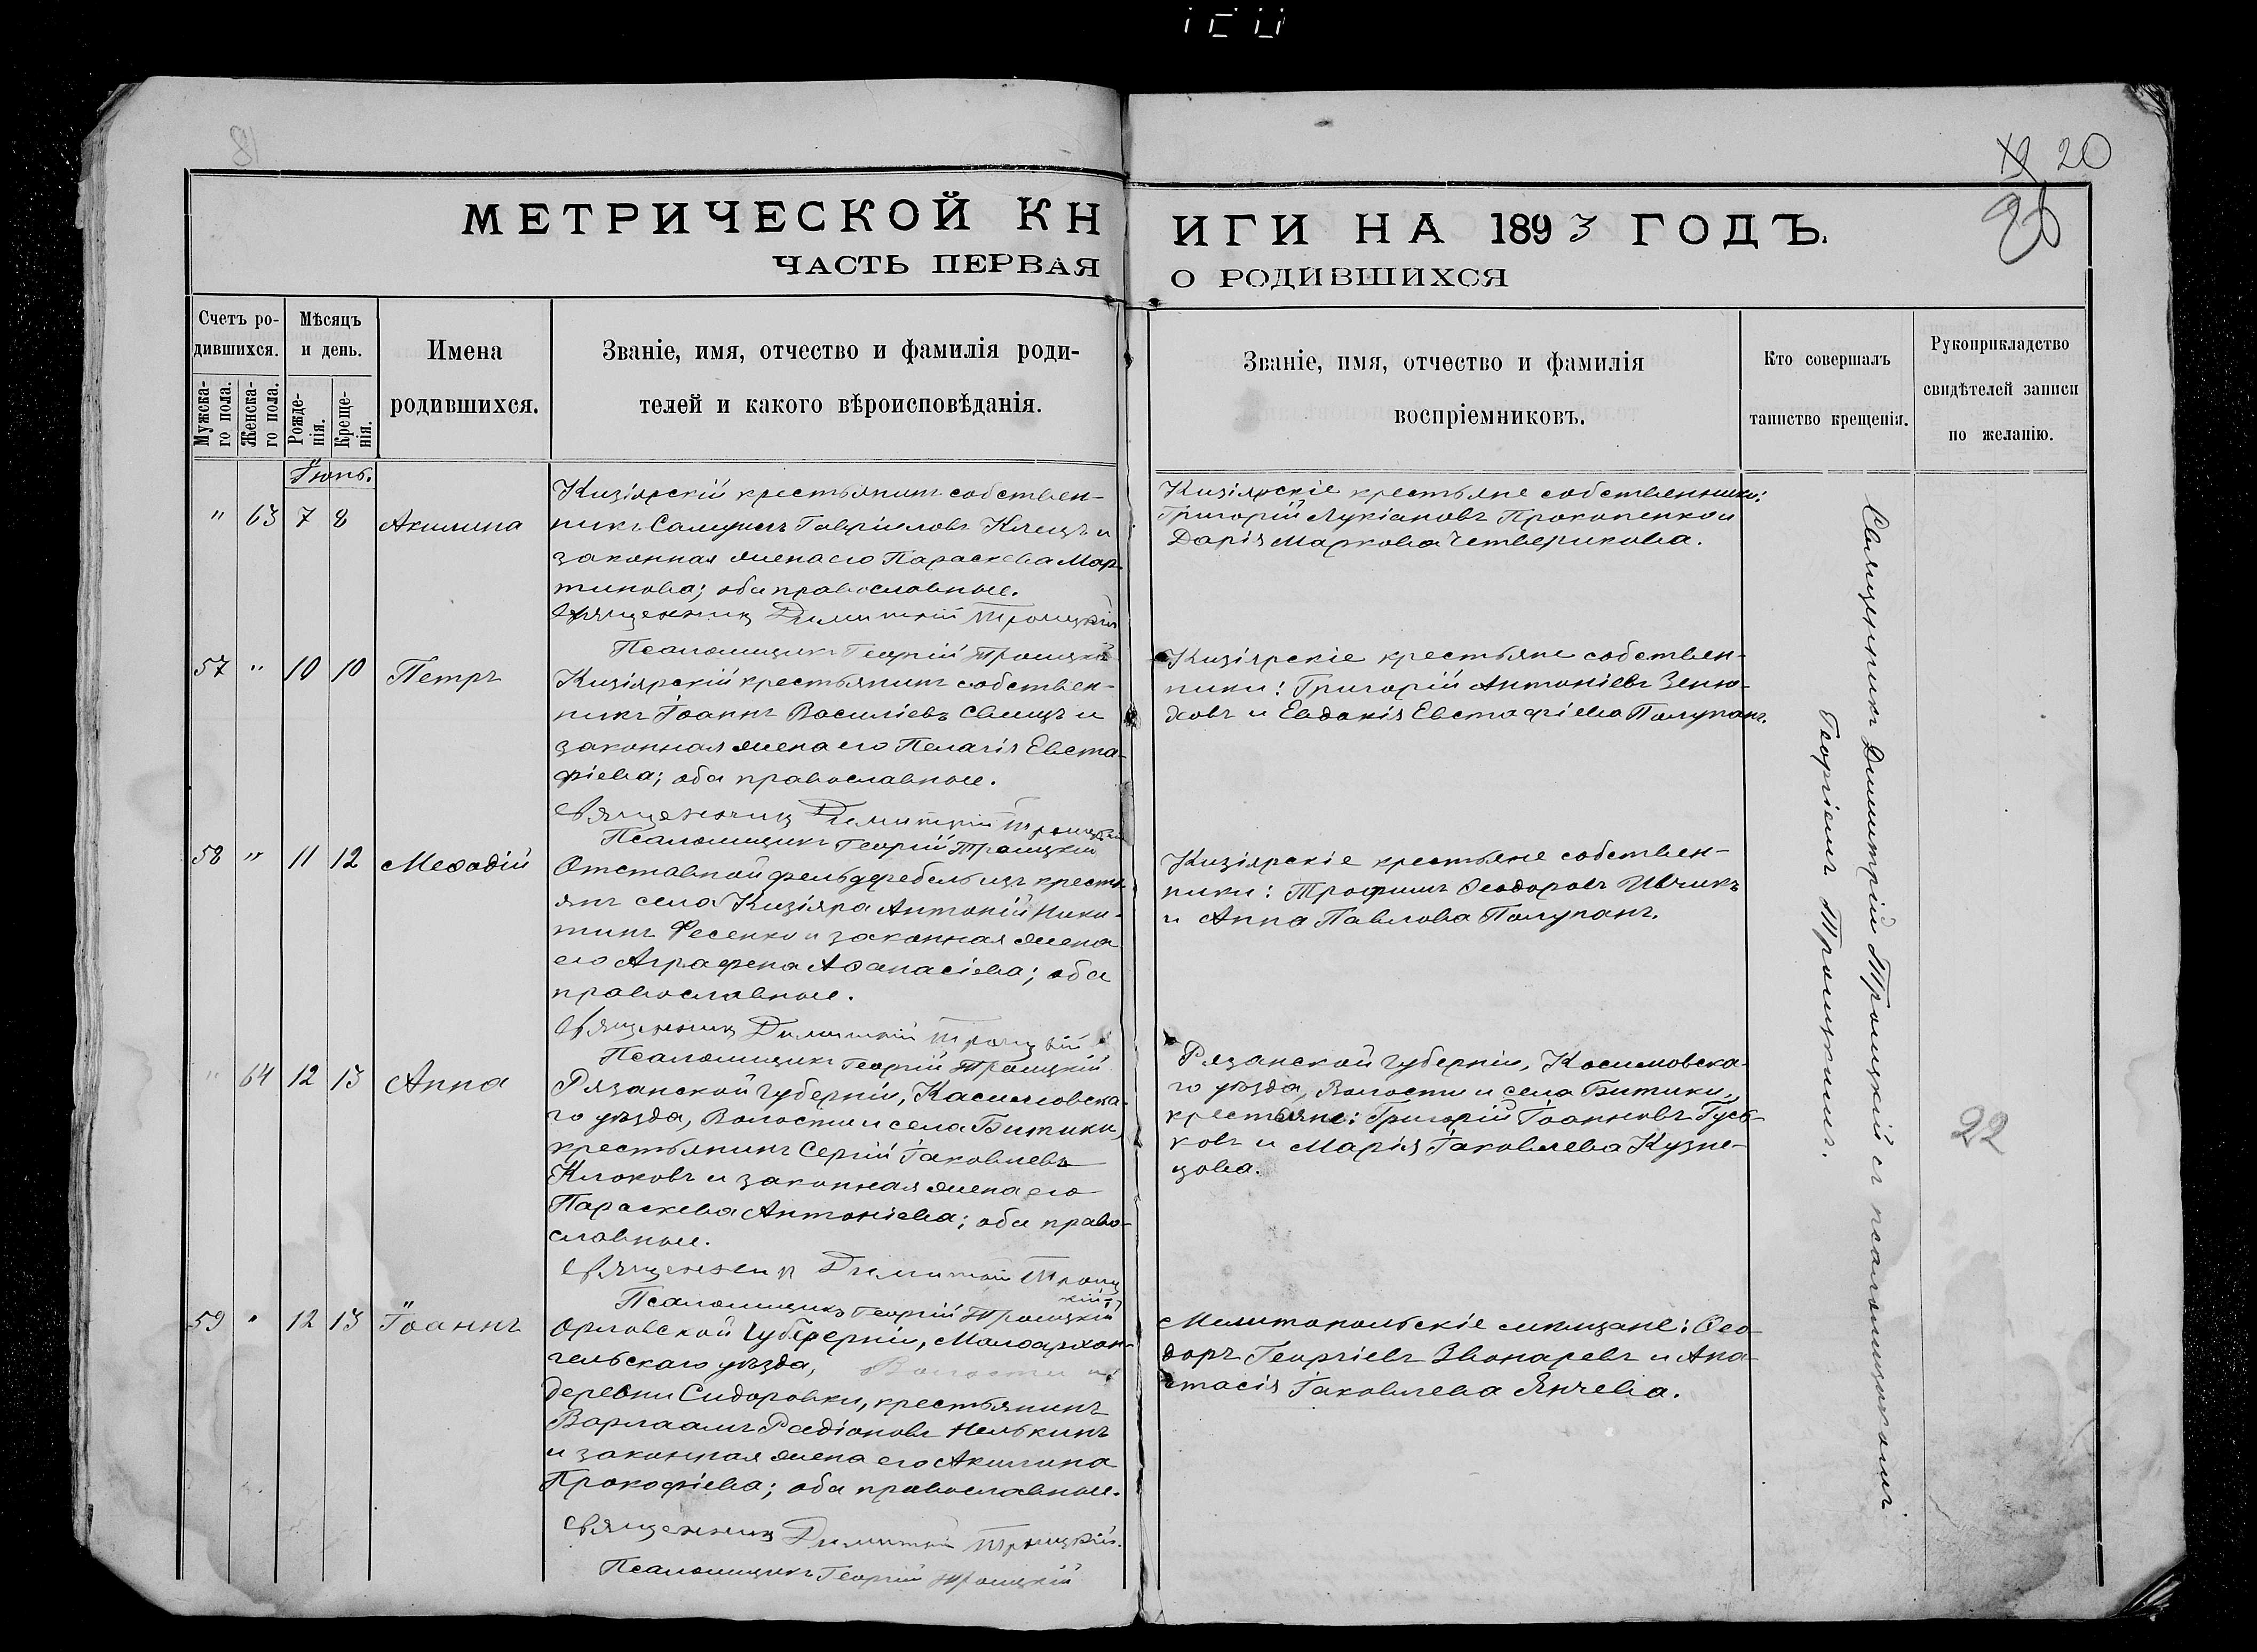 81
20
МЕТРИЧЕСКОЙ КНИГИ НА 1893 ГОДЪ.
ЧАСТЬ ПЕРВАЯ О РОДИВШИХСЯ
Счетъ ро-
дившихся.
Мужска-
го пола.
Женска-
го пола.
Мѣсяцъ
и день.
Рожде-
нія.
Креще-
нія.
Имена
родившихся.
Званіе, имя, отчество и фамилія роди-
телей и какого вѣроисповѣданія.
Званіе, имя, отчество и фамилія
воспріемниковъ.
Кто совершалъ
таинство крещенія.
Рукоприкладство
свидѣтелей записи
по желанію.
Іюнь.
" 63 7 8 Акилина
Кизіярскій крестьянинъ собствен-
никъ Самуилъ Гавріиловъ Клецъ и
законная жена его Параскева Мар-
тинова; оба православные.
Священникъ Димитрій Троицкій
Псаломщикъ Георгій Троицкій
Кизіярскіе крестьяне собственники:
Григорій Лукіановъ Прокопенко и
Дарія Маркова Четверикова.
57 " 10 10 Петръ
Кизіярскій крестьянинъ собствен-
никъ Іоаннъ Василіевъ Свищъ и
законная жена его Пелагія Евста-
фіева; оба православные.
Священникъ Димитрій Троицкій
Псаломщикъ Георгій Троицкій
Кизіярскіе крестьяне собствен-
ники: Григорій Антоніевъ
и Евдокія Евстафіева Полупанъ.
58 " 11 12 Меѳодій
Отставной фельдфебель изъ кресть-
янъ села Кизіяра Антоній Ники-
тинъ Фесенко и законная жена
его Аграфена Аѳанасіева; оба
православные.
Священникъ Димитрій Троицкій
Псаломщикъ Георгій Троицкій
Кизіярскіе крестьяне собствен-
ники: Трофимъ Ѳеодоровъ Ивчикъ
и Анна Павлова Полупанъ.
" 64 12 13 Анна
Рязанской Губерніи, Касимовска-
го уѣзда, Волости и села Битики,
крестьянинъ Сергій Іаковлевъ
Клоковъ и законная жена его
Параскева Антоніева; оба право-
славные.
Священникъ Димитрій Троиц
кій
Псаломщикъ Георгій Троицкій
Рязанской Губерніи, Косимовска-
го уѣзда, Волости и села Битики,
крестьяне: Григорій Іоанновъ Гусь-
ковъ и Марія Іаковлева Кузне-
цова.
59 " 12 13 Іоаннъ
Орловской Губерніи, Малоархан-
гельскаго уѣзда, Волости и
деревни Сидоровки, крестьянинъ
Варлаамъ Радіоновъ Нелькинъ
и законная жена его Акилина
Прокофіева; оба православные.
Священникъ Димитрій Троицкій.
Псаломщикъ Георгій Троицкій
Мелитопольскіе мѣщане: Ѳео-
доръ Георгіевъ Звонаревъ и Ана-
стасія Іаковлева Янчева.
Священникъ Димитрій Троицкій съ псаломщикомъ
Георгіемъ Троицкимъ.
22